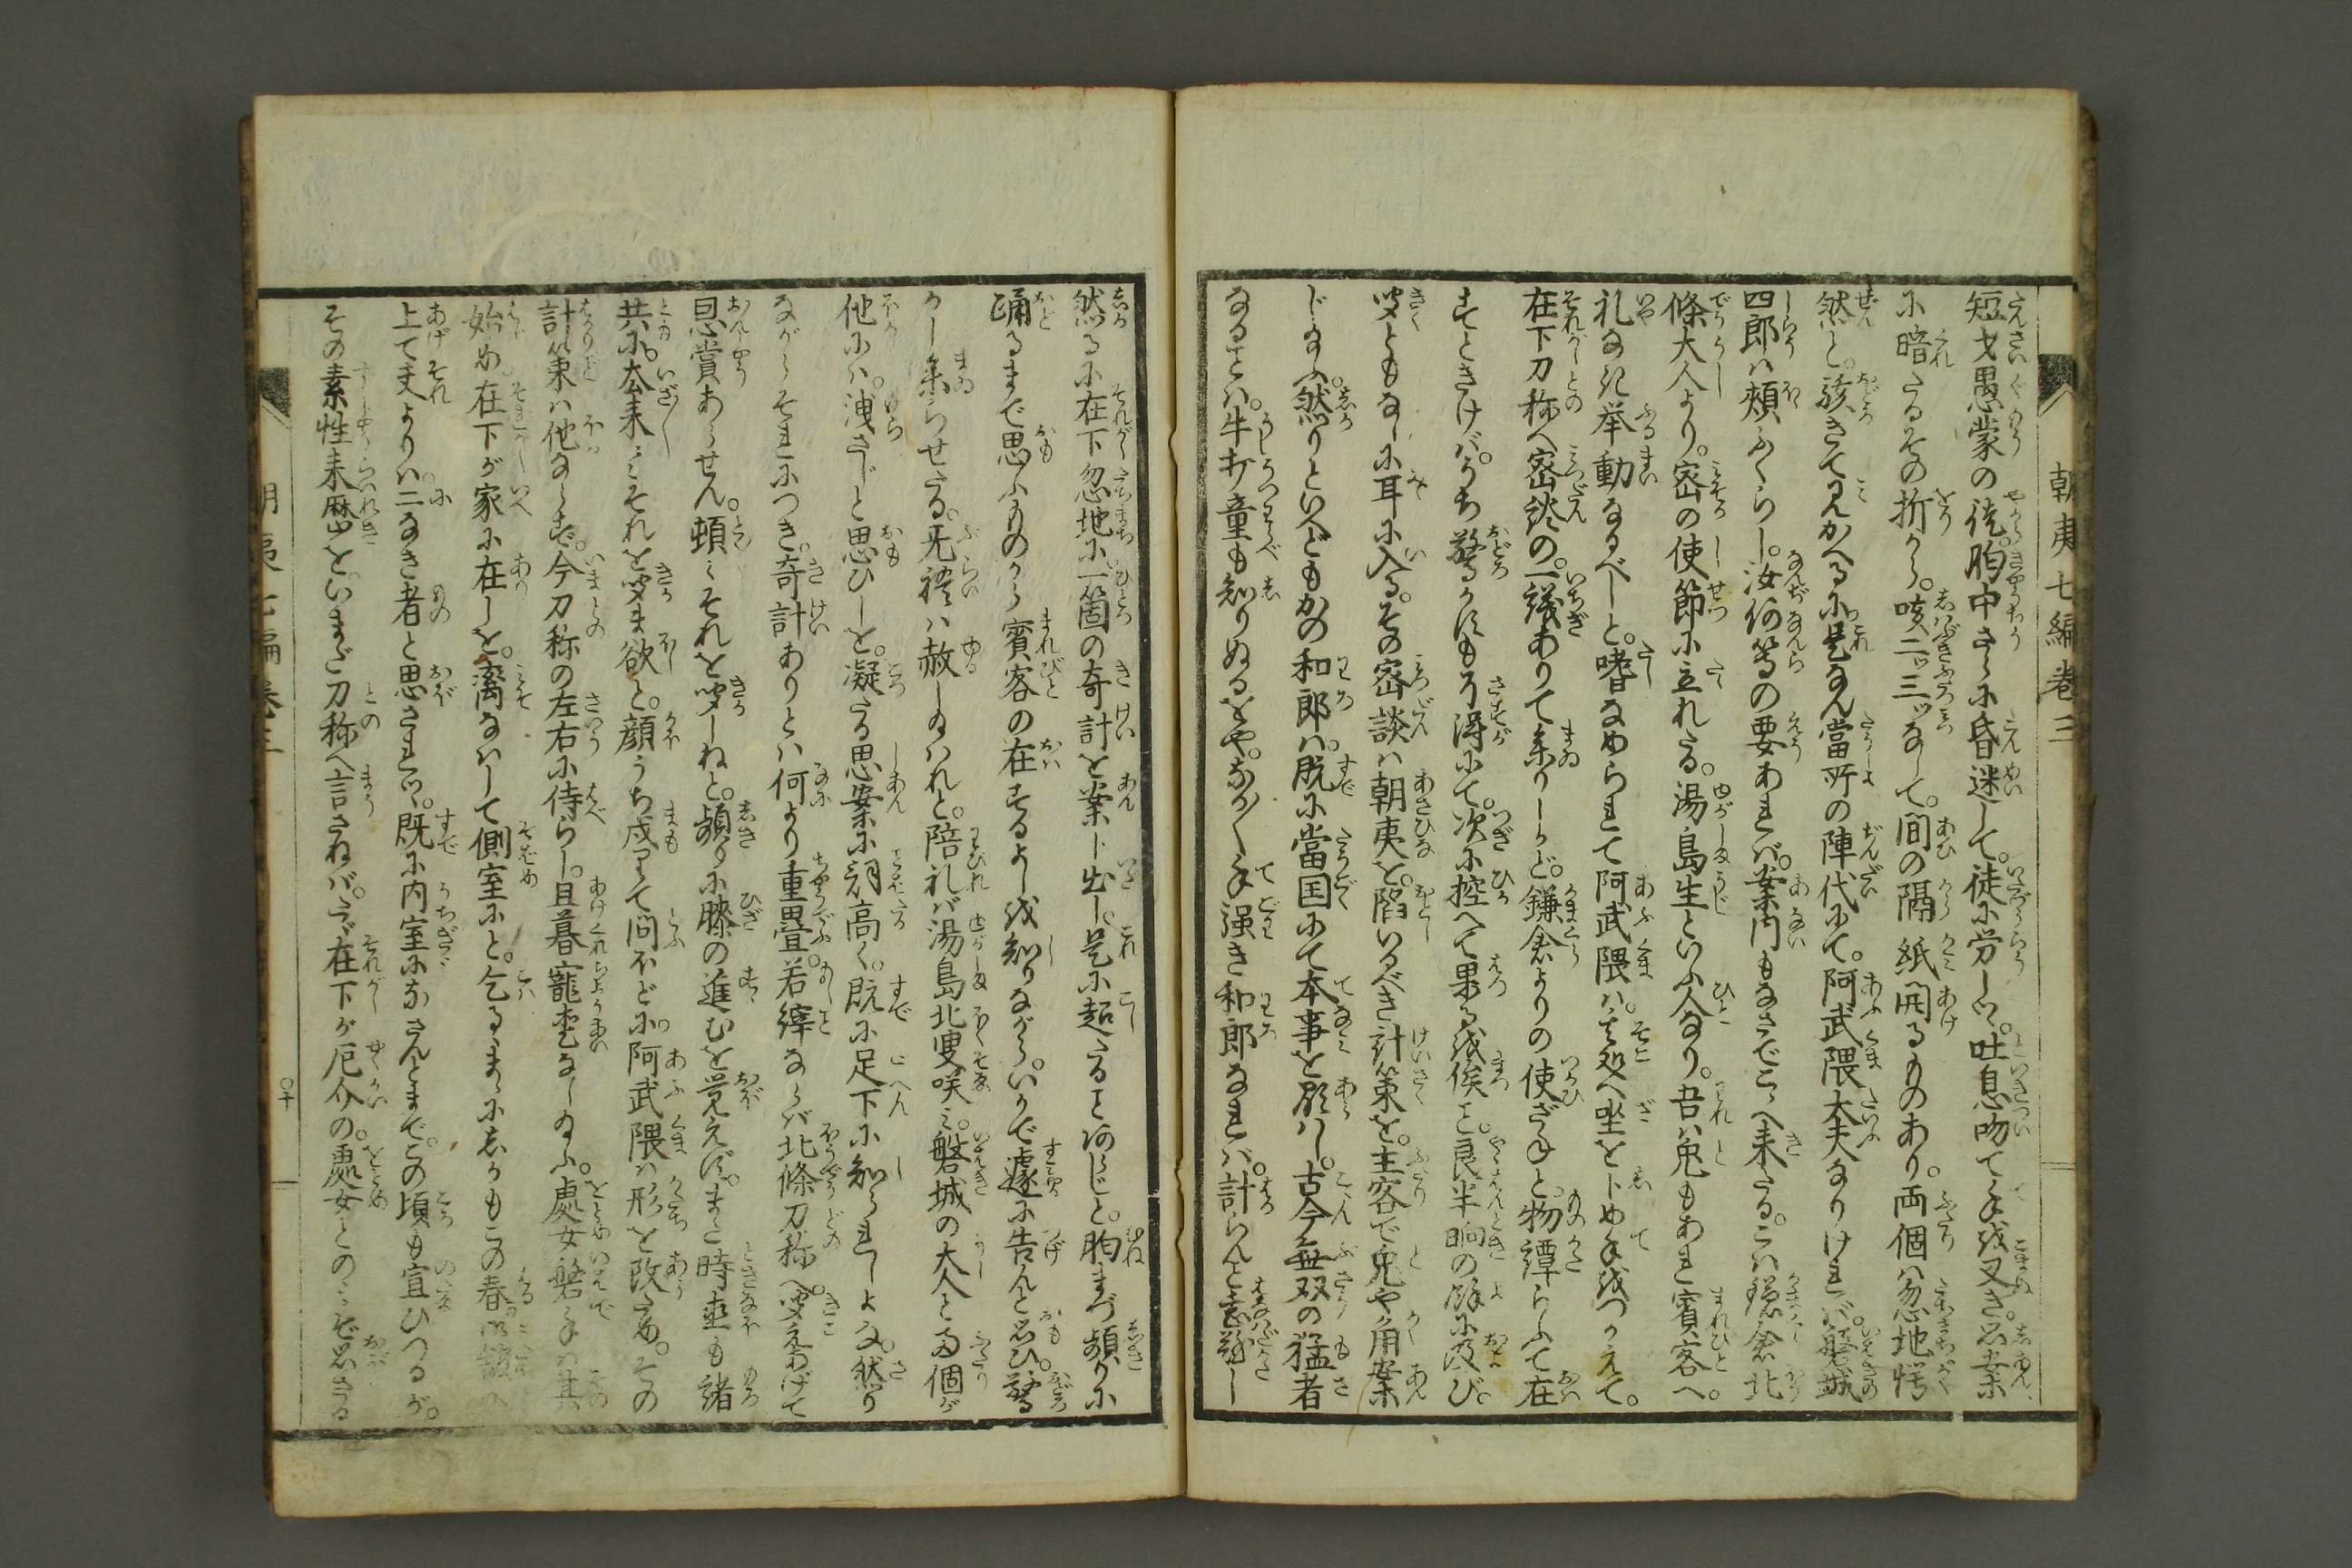 朝夷七編巻三
短才愚蒙の徒。胸中さらに昏迷して。徒に労しつ。吐息吻て手を叉き。思案
に暗たるその折から。咳二ッ三ッなして。間の隔紙開るものあり。両個は忽地愕
然と。駭きて見かへるに是なん當所の陣代にて。阿武隈太夫なりければ。磐城
四郎は頬ふくらし。汝何等の要あれば。案内もなさでこゝへ来たる。こは鎌倉北
條大人より。密の使節に立れたる。湯島生といふ人なり。吾は兎もあれ賓客へ。
礼なき挙動なるべしと。嗜なめられて阿武隈は。其処へ坐を卜め手をつかえて。
在下刀称へ密談の。一議ありて参りしかど。鎌倉よりの使ざねと。物譚らふて在
すときけば。うち驚かすもさすがにて。次に控へて果るを俟と。良半晌の餘に及び。
聞ともなしに耳に入る。その密談は朝夷を。陥いるべき計策を。主客で兎や角案
じ給ふ。然りといへどもかの和郎は。既に當国にて本事を顕はし。古今無双の猛者
なることは。牛打童も知りぬるをや。なか〳〵手強き和郎なれば。計らんと甚難し
然るに在下忽地に。一箇の奇計を案じ出し。是に超たることあらじと。胸まづ頻りに
踊るまで思ふものから賓客の在するよしを知りながら。いかで遽に告んと思ひ。驚
かし参らせたる。无礼は赦し給はれと。陪礼ば湯島北叟咲み。磐城の大人と両個が
他には。洩さじと思ひしを。凝たる思案に詞高く。既に足下に知られしよな。然り
ながらそれにつき。奇計ありとは何より重畳。若繹ならば北條刀称へ。聞えあげて
恩賞あらせん。頓〻それを聞しねと。頻りに膝の進むを覚えず。また時直も諸
共に。太来〻それを聞ま欲と。顔うち戍りて問ほどに。阿武隈は形を改ため。その
計策は他ならず。今刀称の左右に侍らし。且暮寵壱なし給ふ。處女磐手は其
始め。在下が家に在しを。溝なはして側室にと。乞るまゝにしかもこの春
上て夫よりは二なき者と思されつ。既に内室になさんとまで。この頃も宣ひつるが。
その素性来歴をいまだ刀称へ言さねば。たゞ在下が厄介の。處女とのみぞ思さる
朝夷七編巻三
〇十